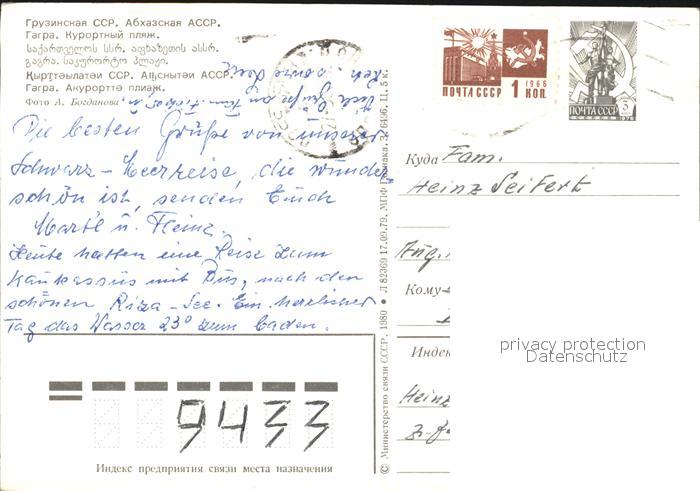 Грузинская ССР. Абхазская АССР.
Гагра. Курортный пляж.
საქართველოს სსრ. აფხაზეთის ასსრ.
გაგრა. საკურორტო პლაჟი.
Қырҭтәылатәи ССР. Аҧснытәи АССР.
Гагра. Акурорттә пляж.
Фото А. Богданова
Die besten Grüße von unserer
Schwarz-Meerreise, die wunder
schön ist, senden Euch
Martl u. Heinz.
Heute hatten eine Reise zum
Kaukassus mit Bus, nach den
schönen Riza-See. Ein herrlicher
Tag das Wasser 23° zum baden.
ПОЧТА СССР 1 КОП.
1966
ПОЧТА СССР 3
1976
Куда Fam.
Heinz Seifert
Aug.
Кому
Индек
Heinz
privacy protection
Datenschutz
© Министерство связи СССР, 1980 • Л 82369 17.09.79. МПФ Гознака. З. 16496. Ц. 5 к.
9433
Индекс предприятия связи места назначения